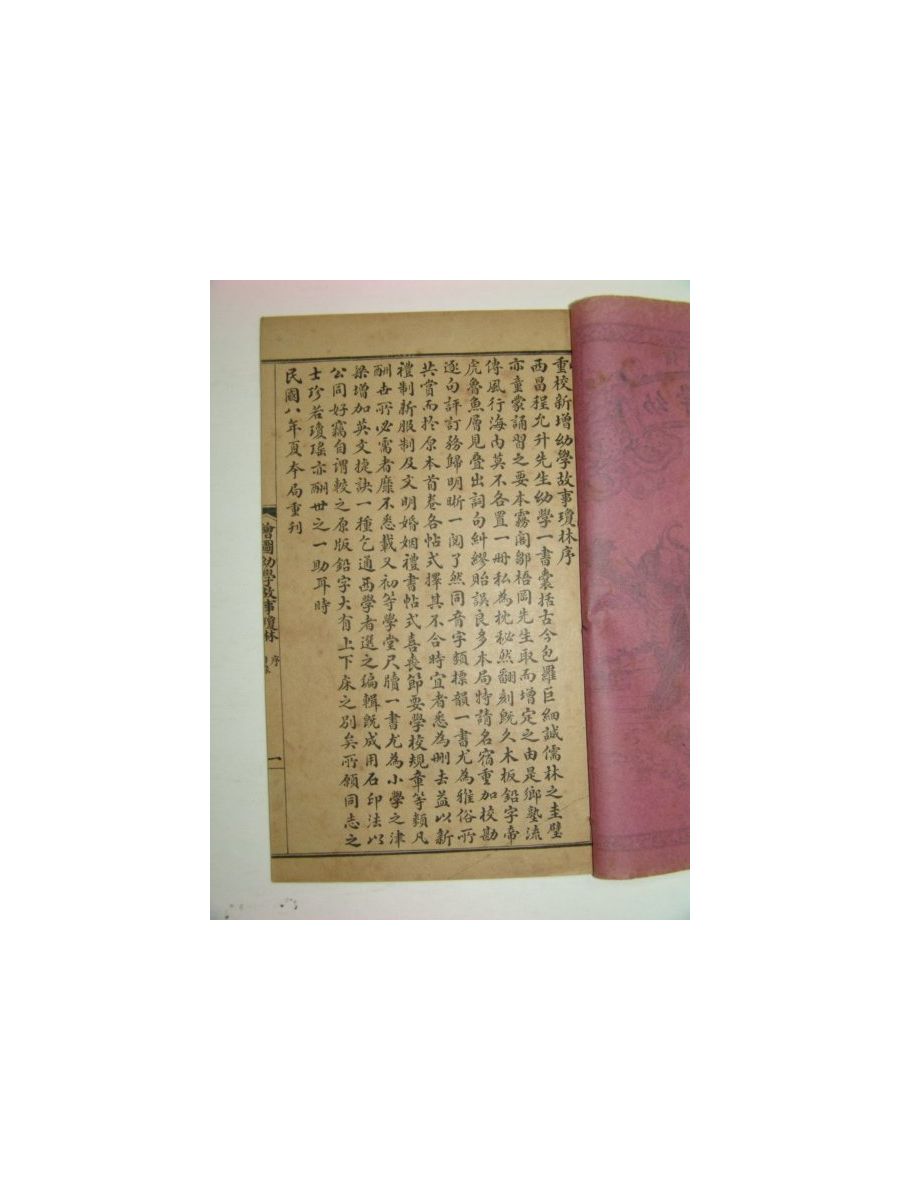 重校新增幼學故事瓊林序
西昌程允升先生幼學一書囊括古今包羅巨細誠儒林之圭璧
亦童蒙誦習之要本霧閣鄒梧岡先生取而增定之由是鄉塾流
傳風行海內莫不各置一冊私為枕秘然翻刻既久木板鉛字帝
虎魯魚層見叠出詞句糾繆貽誤良多本局特請名宿重加校勘
逐句評訂務歸明晰一閱了然同音字類標韻一書尤為雅俗所
共賞而於原本首卷各帖式擇其不合時宜者悉為刪去益以新
禮制新服制及文明婚姻禮書帖式喜喪節要學校規章等類凡
酬世所必需者靡不悉載又初等學堂尺牘一書尤為小學之津
梁增加英文捷訣一種乞通西學者選之編輯既成用石印法以
公同好竊自謂較之原版鉛字大有上下床之別矣所願同志之
士珍若瓊瑤亦酬世之一助耳時
民國八年夏本局重刊
繪圖幼學故事瓊林
序
一
幼